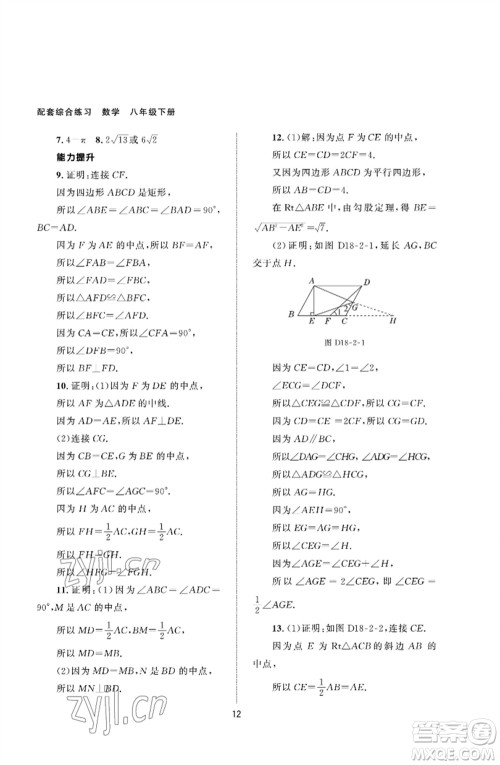 配套综合练习 数学 八年级下册
7. 4－π 8. 2√13或 6√2
能力提升
9. 证明：连接 CF.
因为四边形 ABCD 是矩形，
所以∠ABE＝∠ABC＝∠BAD＝90°，
BC＝AD.
因为 F 为 AE 的中点，
所以 AF＝BF＝EF.
所以∠FAB＝∠FBA.
所以∠FAD＝∠FBC.
所以△AFD≌△BFC.
所以∠AFD＝∠BFC.
因为 CA＝CE，所以 CF⊥AE.
所以∠DFB＝90°.
所以 BF⊥FD.
10. 证明：(1)因为 F 是 AD 的中点，
所以 AF 为△ADE 的中线.
因为 AD＝AE，所以 AF⊥DE.
(2)连接 GC.
因为 CB＝CE，G 为 BE 的中点，
所以 CG⊥BE.
所以∠AFC＝∠AGC＝90°.
因为 H 为 AC 的中点，
所以 FH＝1/2 AC，GH＝1/2 AC.
所以 FH＝GH.
所以∠HFG＝∠HGF.
11. 证明：(1)因为∠ABC＝∠ADC＝
90°，M 是 AC 的中点，
所以 MD＝1/2 AC，MB＝1/2 AC.
所以 MD＝MB.
(2)因为 N 是 BD 的中点，
所以 MN⊥BD.
12. (1)解：因为点 F 为 CE 的中点，
所以 CE＝CD＝2CF＝4.
又因为四边形 ABCD 为平行四边形，
所以 AB＝CD＝4.
在 Rt△ABE 中，由勾股定理，得 BE＝
√AB²－AE²＝√7.
(2)证明：如图 D18-2-1，延长 AG，BC
交于点 H.
A D G B E F C H 1 2
图 D18-2-1
因为 CE＝CD，∠1＝∠2，
∠ECG＝∠DCF，
所以△CEG≌△CDF. 所以 CG＝CF.
因为 CD＝CE＝2CF，所以 CG＝GD.
因为 AD∥BC，
所以∠DAG＝∠CHG，∠ADG＝∠HCG.
所以△ADG≌△HCG.
所以 AG＝HG.
因为∠AEH＝90°，所以 EG＝AG＝HG.
所以∠CEG＝∠H.
因为∠AGE＝∠CEG＋∠H，
所以∠AGE＝2∠CEG，即∠CEG＝
1/2∠AGE.
13. (1)证明：如图 D18-2-2，连接 CE.
因为点 E 为 Rt△ACB 的斜边 AB 的
中点，
所以 CE＝1/2 AB＝AE.
12
zyjl.cn
zyjl.cn
作业帮